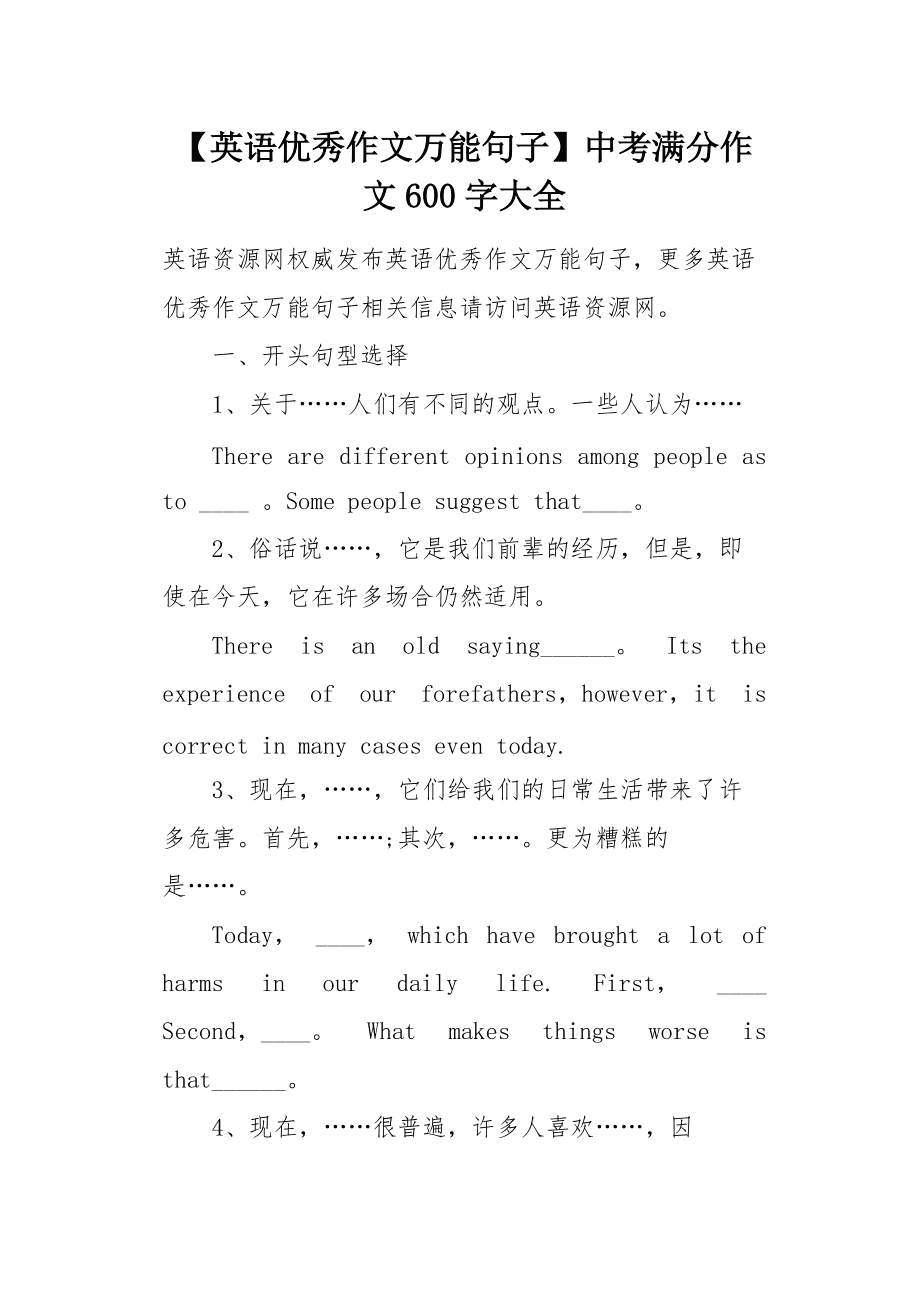 【英语优秀作文万能句子】中考满分作
文 600 字大全
英语资源网权威发布英语优秀作文万能句子，更多英语
优秀作文万能句子相关信息请访问英语资源网。
一、开头句型选择
1、关于……人们有不同的观点。一些人认为……
There are different opinions among people as
to ____ 。Some people suggest that____。
2、俗话说……，它是我们前辈的经历，但是，即
使在今天，它在许多场合仍然适用。
There is an old saying______。 Its the
experience of our forefathers，however，it is
correct in many cases even today.
3、现在，……，它们给我们的日常生活带来了许
多危害。首先，……;其次，……。更为糟糕的
是……。
Today， ____， which have brought a lot of
harms in our daily life. First， ____
Second，____。 What makes things worse is
that______。
4、现在，……很普遍，许多人喜欢……，因